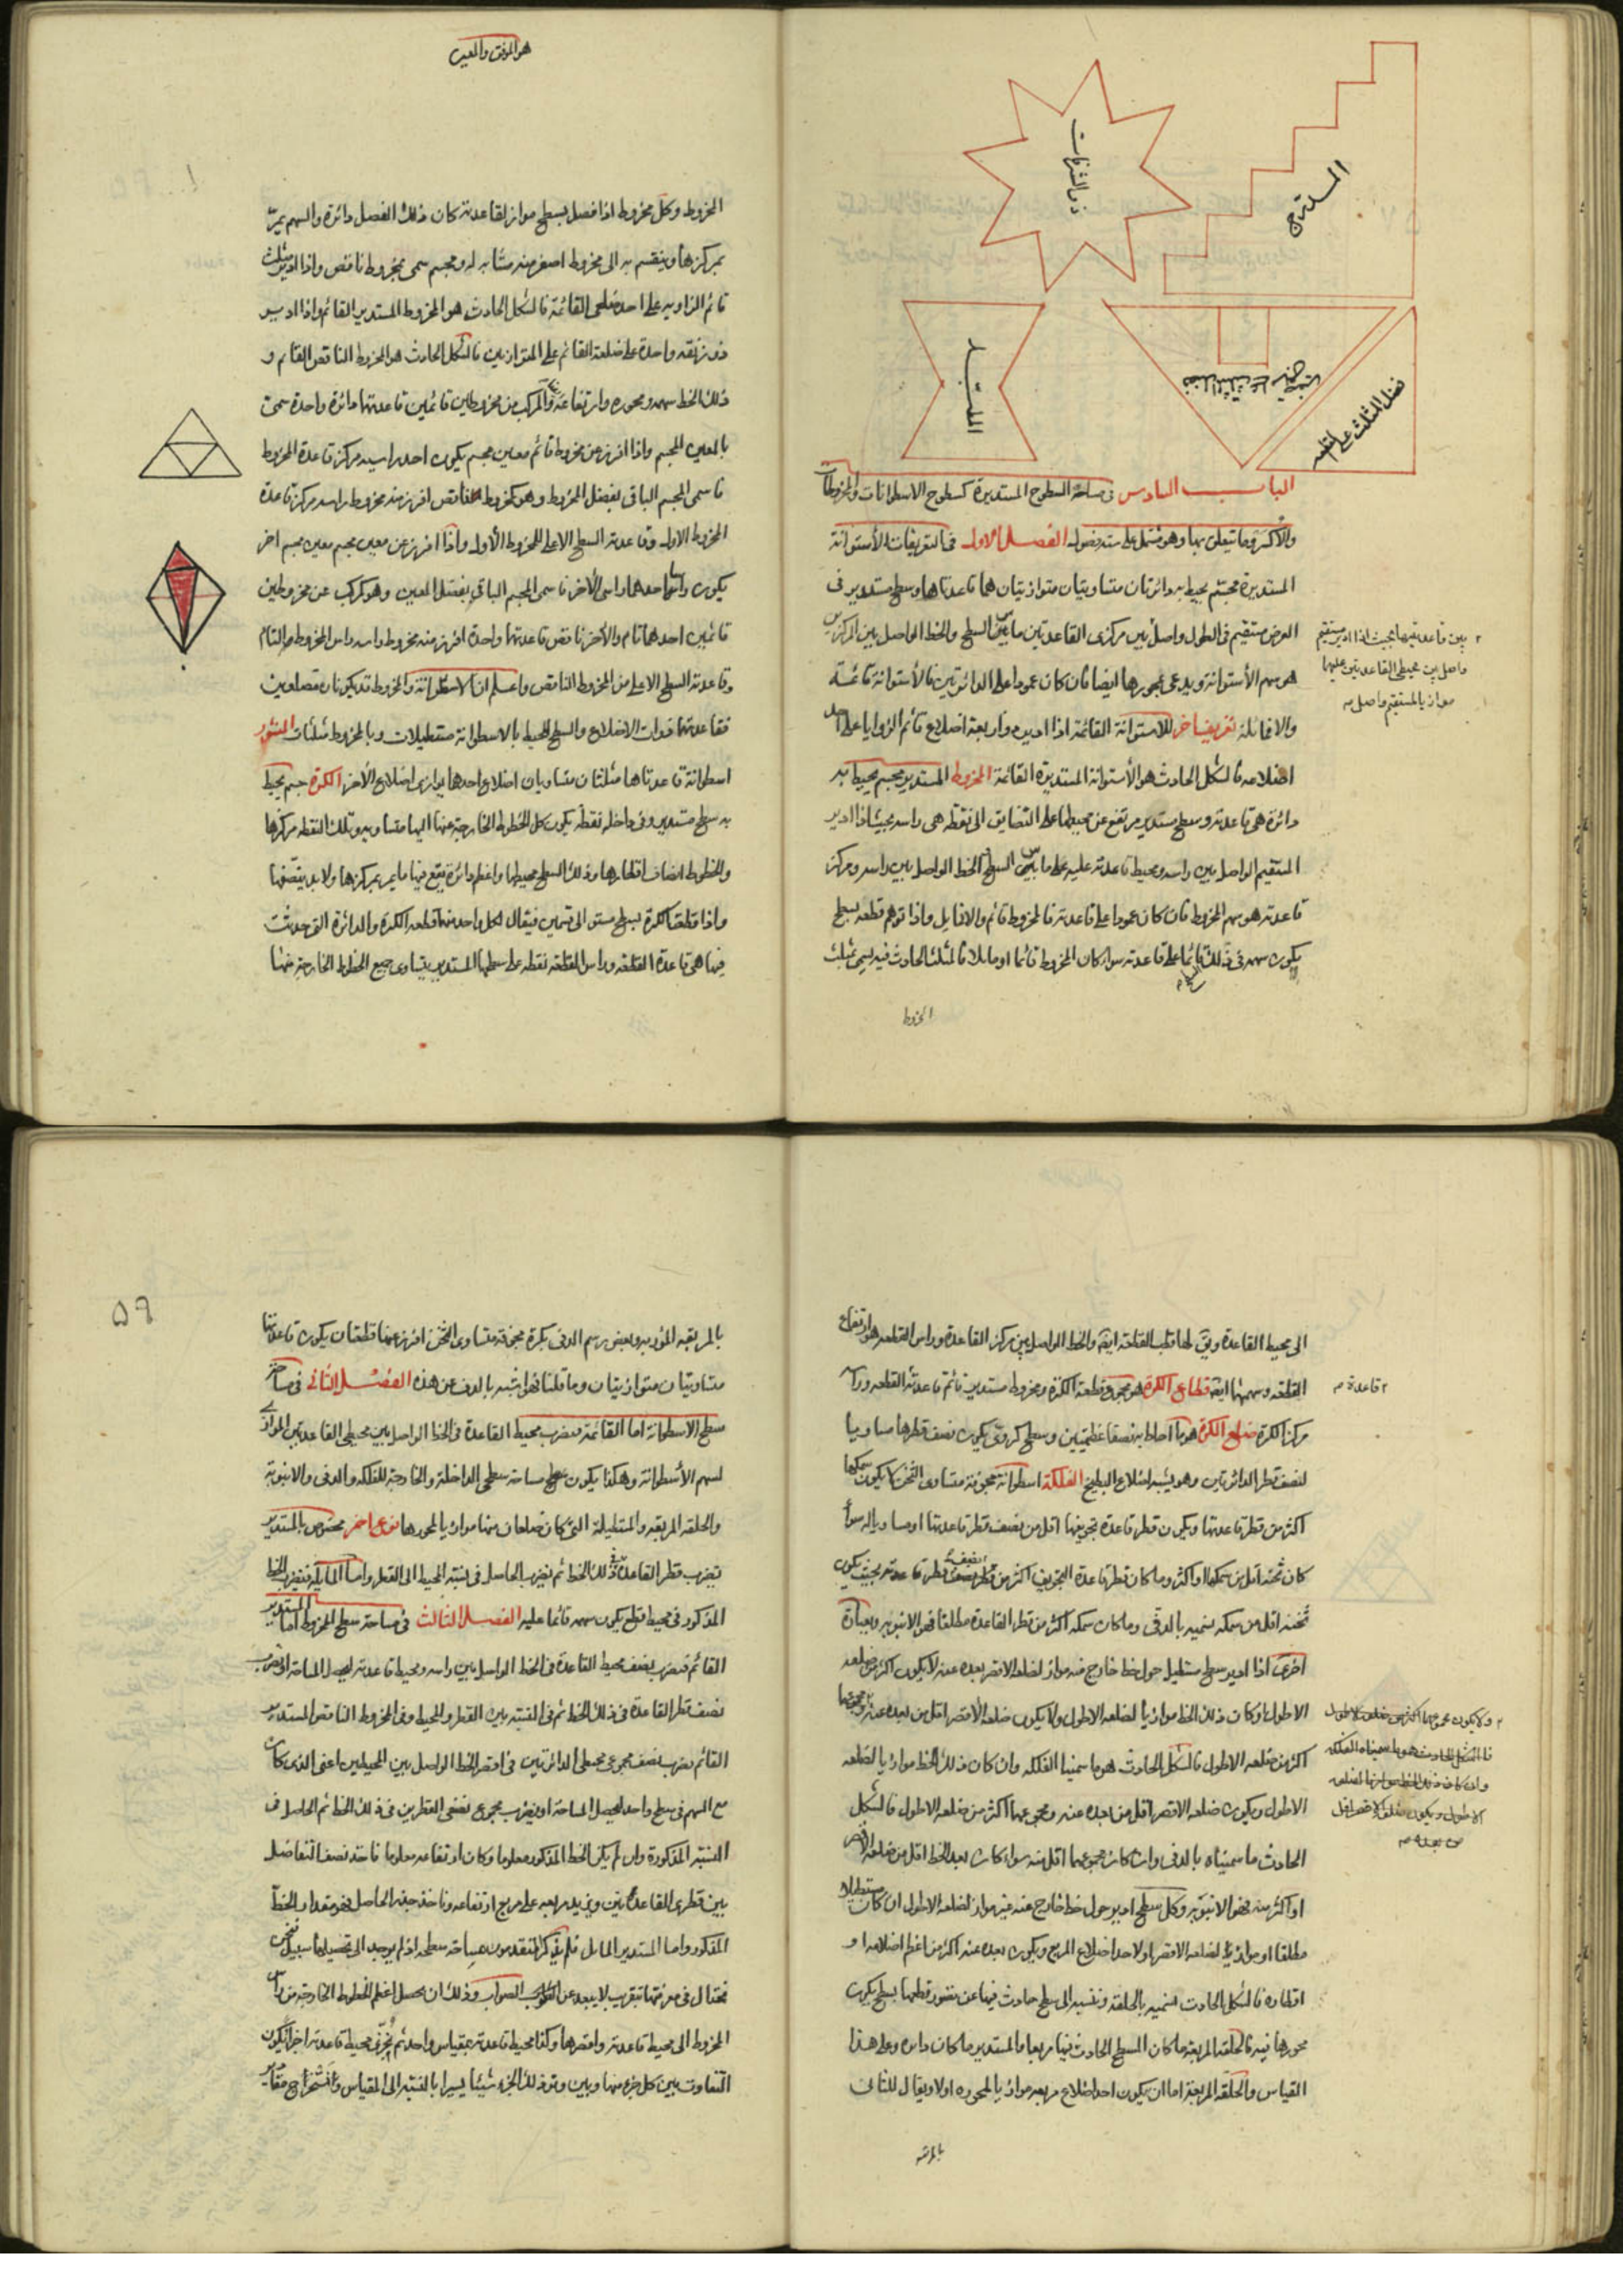 هو الموفق والمعين
ذو الشرفات
المدرج
فضل المثلث على
الباب السادس في مساحة السطوح المستديرة كسطوح الاسطوانات والمخروطات
والاكر وما يتعلق بها وهو مشتمل على ستة فصول الفصل الاول في التعريفات الأستوانة
المستديرة مجسم يحيط به دائرتان متساويتان متوازيتان هما قاعدتاها وسطح مستدير في
العرض مستقيم في الطول واصل بين مركزى القاعدتين السطح والخط الواصل بين المركزين
هو سهم الأستوانة ويدعى بمحورها ايضا فان كان عمودا على الدائرتين فالأستوانة قائمة
والا فمائلة تعريف اخر للاستوانة القائمة اذا ادير ذو اربعة اضلاع قائم الزوايا على احد
اضلاعه فالشكل الحادث هو الأستوانة المستديرة القائمة المخروط المستدير مجسم يحيط به
دائرة هي قاعدته وسطح مستدير مرتفع عن محيطها على التضايق الى نقطة هي راسه بحيث اذا ادير
المستقيم الواصل بين راسه ومحيط قاعدته عليه السطح الخط الواصل بين راسه ومركز
قاعدته هو سهم المخروط فان كان عمودا على قاعدته فالمخروط قائم والا فمايل واذا توهم قطعه بسطح
يكون سهمه في ذلك قائما على قاعدته سواء كان المخروط قائما او مايلا فالمثلث الحادث فيه يسمى بمثلث
المخروط
بين قاعدتيهما بحيث اذا ادير مستقيم
واصل بين محيطى القاعدتين عليهما
المخروط وكل مخروط اذا فصل بسطح مواز لقاعدته كان ذلك الفصل دائرة والسهم يمر
بمركزها وينقسم به الى مخروط اصغر منه مشابه له ومجسم سمى بمخروط ناقص واذا ادير مثلث
قائم الزاويه على احد ضلعى القائمة فالشكل الحادث هو المخروط المستدير القائم واذا ادير
ذو زنقه واحدة على ضلعه القائم على المتوازيين فالشكل الحادث هو المخروط الناقص القائم و
ذلك الخط سهمه ومحوره وارتفاعه والمركب من مخروطين قائمين قاعدتهما دائرة واحدة سمى
بالمعين المجسم واذا افرز من مخروط قائم معين مجسم يكون احد راسيه مركز قاعدة المخروط
فاسمى المجسم الباقى بفضل المخروط وهو كمخروط ناقص افرز منه مخروط راسه مركز قاعدة
المخروط الاول وقاعدته السطح الاعلى للمخروط الأول واذا افرز عن معين مجسم معين مجسم اخر
يكون راس احدهما راس الآخر فاسمى المجسم الباقى بفضل المعين وهو كمركب عن مخروطين
قائمين احدهما تام والآخر ناقص قاعدتهما واحدة افرز منه مخروط راسه راس المخروط التام
وقاعدته السطح الاعلى من المخروط الناقص واعلم ان الاسطوانة والمخروط قد يكونان مضلعين
فقاعدتهما ذوات الاضلاع والسطح المحيط بالاسطوانة مستطيلات وبالمخروط مثلثات المنشور
اسطوانة قاعدتاها مثلثتان متساويان اضلاع احدها يوازى اضلاع الأخر الكرة جسم يحيط
به سطح مستدير وفى داخله نقطة يكون كل الخطوط الخارجة عنها اليها متساويه وتلك النقطه مركزها
والخطوط انصاف اقطارها وذلك السطح محيطها واعظم دائرة تقع فيها ما يمر بمركزها ولابد ينصفها
واذا قطعت الكرة بسطح مستو الى قسمين فيقال لكل واحد منهما قطعه الكرة والدائرة التى حدثت
فيها هى قاعدة القطعه وراس القطعه نقطه على سطحها المستدير يتساوى جميع الخطوط الخارجة منها
الى محيط القاعدة ويق لها قطب القطعة ايضا والخط الواصل بين مركز القاعدة وراس القطعه هو ارتفاع
القطعه وسهمها ايضا قطاع الكرة هو مجموع قطعة الكرة ومخروط مستدير قائم قاعدته القطعه وراسه
مركز الكرة ضلع الكرة هو ما احاط به نصفا عظيمتين وسطح كروى يكون نصف قطرها مساويا
لنصف قطر الدائرتين وهو يشبه اضلاع البطيخ الفلكة اسطوانة مجوفة متساوى الثخن لا يكون سمكها
اكثر من قطر قاعدتها ويكون قطر قاعدة تجويفها اقل من نصف قطر قاعدتها او مساويا له سواء
كان ثخنه اقل من سمكها او اكثر وما كان قطر قاعدة التجويف اكثر من نصف قطر قاعدته بحيث يكون
ثخنه اقل من سمكه نسميه بالدفى وما كان سمكه اكثر من قطر القاعدة مطلقا فهو الانبوبه وبعبارة
اخرى اذا ادير سطح مستطيل حول خط خارج عنه مواز لضلعه الاقصر بعده عنه لا يكون اكثر من ضلعه
الاطول او كان ذلك الخط موازيا لضلعه الاطول ولا يكون ضلعه الأقصر اقل من بعده عنه
اكثر من ضلعه الاطول فالشكل الحادث هو ما سمينا الفلكه وان كان ذلك الخط موازيا لضلعه
الاطول ويكون ضلعه الاقصر اقل من بعده عنه ومجموعهما اكثر من ضلعه الاطول فالشكل
الحادث ما سميناه بالدفى وان كان مجموعهما اقل منه سواء كان بعد الخط اقل من ضلعه الاقصر
او اكثر منه فهو الانبوبه وكل سطح ادير حول خط خارج عنه غير مواز لضلعه الاطول ان كان مستطيلا
مطلقا او موازيا لضلعه الاقصر او لاحد اضلاع المربع ويكون بعده عنه اكثر من اعظم اضلاعه او
اقطاره فالشكل الحادث نسميه بالحلقة وننسبه الى سطح حادث فيها عن تصور قطعها بسطح يكون
محورها فيه فالحلقة المربعة ما كان السطح الحادث فيها مربعا والمستدير ما كان دائره وعلى هذا
القياس والحلقة المربعة اما ان يكون احد اضلاع مربعه موازيا لمحوره اولا ويقال للثانى
قاعدة
ولا يكون مجموعهما اكثر من ضلعه الاطول
فالشكل الحادث هو ما سميناه الفلكه
وان كان ذلك الخط موازيا لضلعه
الاطول ويكون ضلعه الاقصر اقل
من بعده
٥٩
متساويتان متوازيتان وما قلنا فهو اشبه بالدف من هذه الفصل الثانى فى مساحة
سطح الاسطوانة اما القائمة فنضرب محيط القاعدة فى الخط الواصل بين محيطى القاعدتين الموازى
لسهم الأسطوانة وهكذا يكون مساحة سطحى الداخلة والخارجة للفلكه والدفى والانبوبة
والحلقة المربعة والمستطيلة التى كان ضلعان منها موازيا لمحورها نوع اخر مخصوص بالمستدير
نضرب قطر القاعدة فى ذلك الخط ثم نضرب الحاصل فى نسبة المحيط الى القطر واما المايلة فنضرب الخط
المذكور فى محيط قطع يكون سهمه قائما عليه الفصل الثالث فى مساحة سطح المخروط اما المستدير
القائم فنضرب نصف محيط القاعدة فى الخط الواصل بين راسه ومحيط قاعدته ليحصل المساحة او نضرب
نصف قطر القاعدة فى ذلك الخط ثم فى النسبة بين القطر والمحيط وفى المخروط الناقص المستدير
القائم نضرب نصف مجموع محيطى الدائرتين فى اقصر الخط الواصل بين المحيطين اعنى الذى كان
مع السهم فى سطح واحد ليحصل المساحة او نضرب مجموع نصفى القطرين فى ذلك الخط ثم الحاصل فى
النسبة المذكورة وان لم يكن الخط المذكور معلوما وكان ارتفاعه معلوما ناخذ نصف التفاضل
بين قطرى القاعدتين ونزيد مربعه على مربع ارتفاعه وناخذ جذر الحاصل فهو مقدار الخط
المذكور واما المستدير المايل فلم يذكر المتقدمون مساحة سطحه اذ لم يوجد الى تحصيلها سبيل فنحن
نحتال فى معرفتها بتقريب لا يبعد عن الصواب وذلك ان نحصل اعظم الخطوط الخارجة من راس
المخروط الى محيط قاعدته واقصرها وكذا محيط قاعدته بمقياس واحد ثم نجزى محيط قاعدته اجزاء يكون
التفاوت بين كل جزء منها وبين وتر ذلك الجزء شيئا يسيرا بالنسبة الى المقياس ونستخرج مقادير